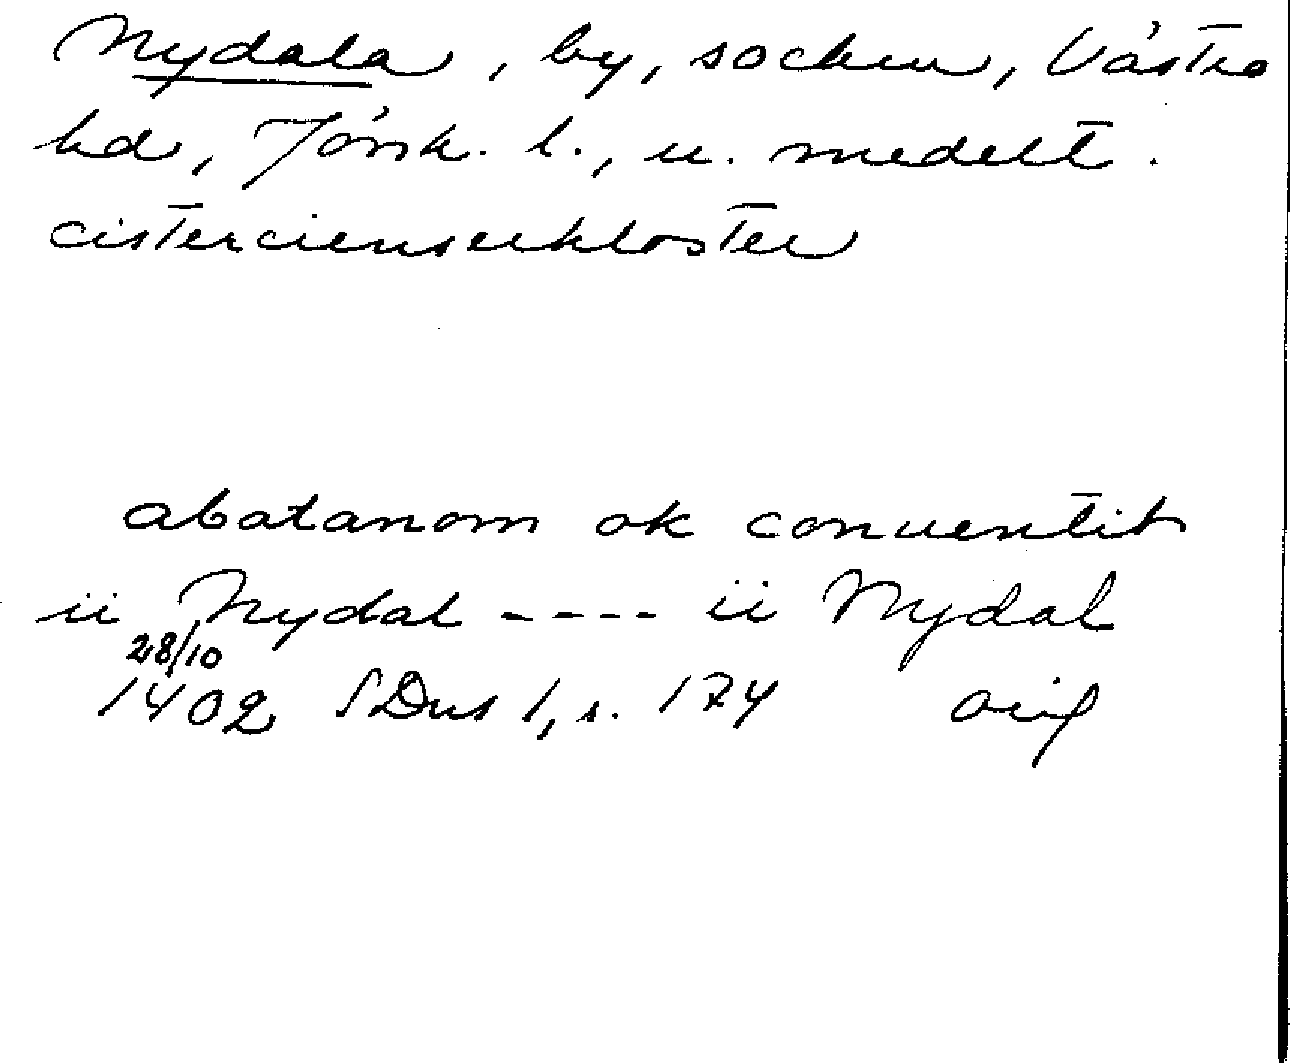 Nydala, by, socken, Västra
hd, Jönk. l., u. medelt.
cistercienserkloster
abatanom ok conuentit
ii Nydal ---- ii Nydal
28/10
1402 SDns 1, s. 174 orig